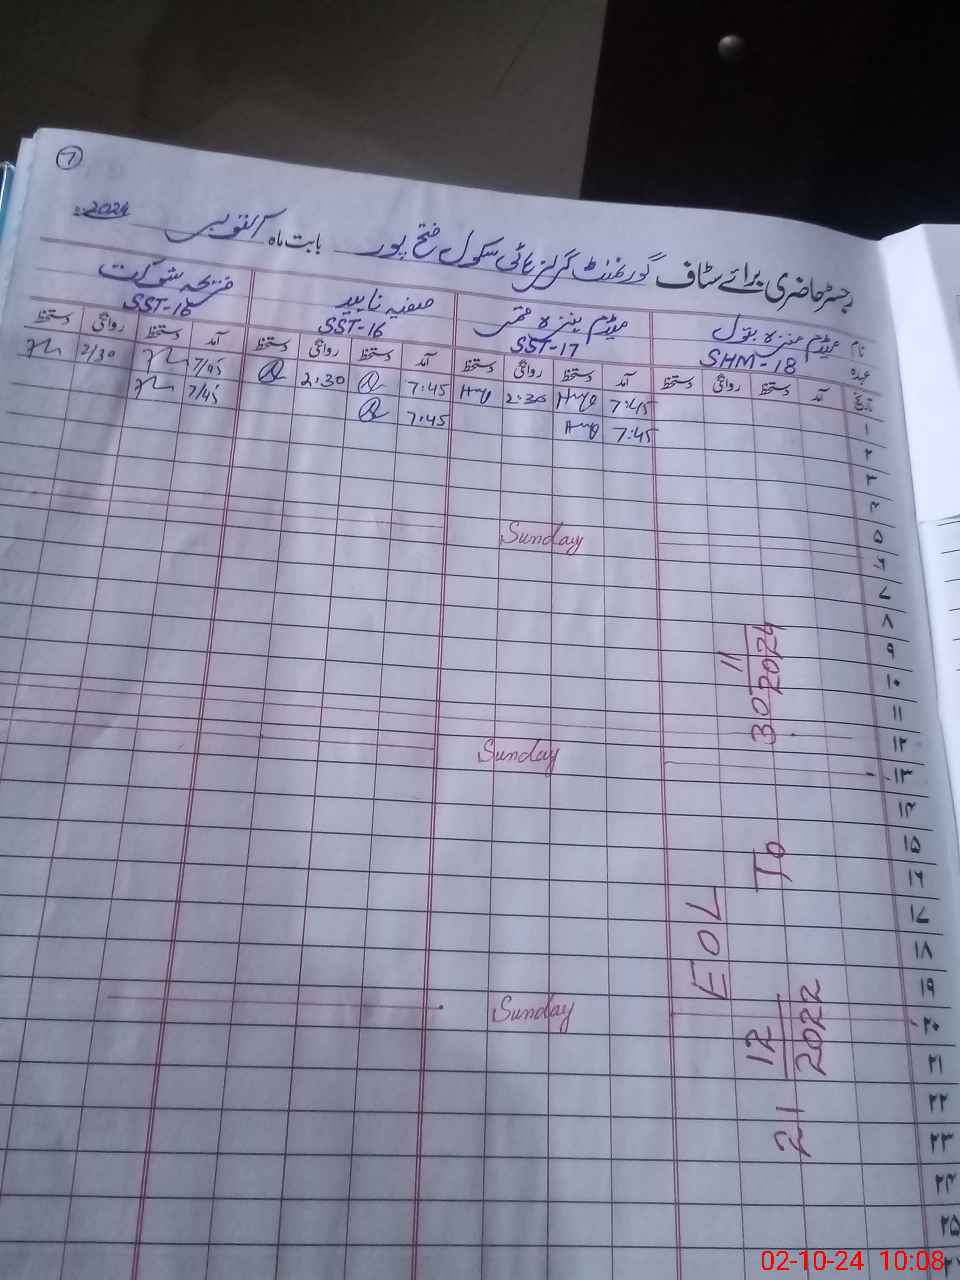 7
رجسٹر حاضری برائے سٹاف گورنمنٹ گرلز ہائی سکول فتح پور بابت ماہ اکتوبر 2024ء
نام میڈم منزہ بتول میڈم صفیہ ناہید شوکت
عہدہ SHM-18 SST-17 SST-16 SST-16
تاریخ آمد دستخط روانگی دستخط آمد دستخط روانگی دستخط آمد دستخط روانگی دستخط آمد دستخط روانگی دستخط
۱ 7:45 2:30 7:45 2:30 7/45 2/30
۲ 7:45 7:45 7/45
۳
۴
۵
۶ Sunday
۷
۸
۹
۱۰
۱۱
۱۲
۱۳ Sunday
۱۴
۱۵
۱۶
۱۷
۱۸
۱۹
۲۰ Sunday
۲۱
۲۲
۲۳
۲۴
۲۵
EOL
21 12 2022 To 30 11 2024
02-10-24 10:08